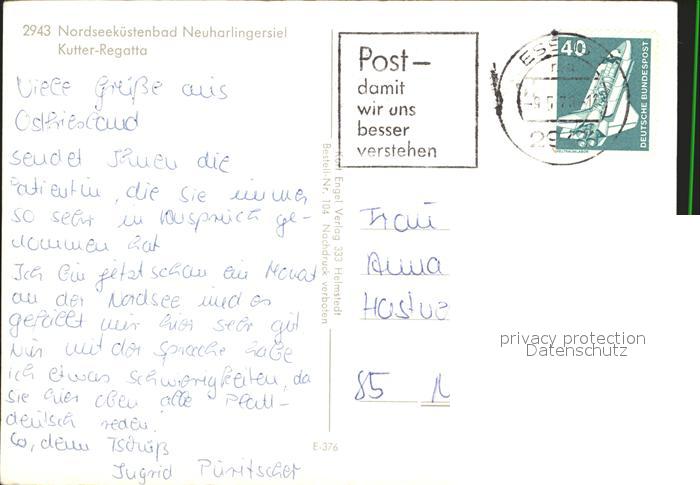 2943 Nordseeküstenbad Neuharlingersiel
Kutter-Regatta
Viele Grüße aus
Ostfriesland
sendet Ihnen die
Patientin, die sie immer
so sehr in Anspruch ge-
nommen hat
Ich bin jetzt schon ein Monat
an der Nordsee und es
gefällt mir hier sehr gut
Nur mit der Sprache habe
ich etwas Schwierigkeiten, da
sie hier eben alle Platt-
deutsch reden.
So, denn Tschüß
Ingrid
E-376
Karl Engel Verlag 333 Helmstedt
Bestell-Nr. 104 Nachdruck verboten
Post–
damit
wir uns
besser
verstehen
ESS
40
DEUTSCHE BUNDESPOST
Frau
Anna
85 N
privacy protection
Datenschutz